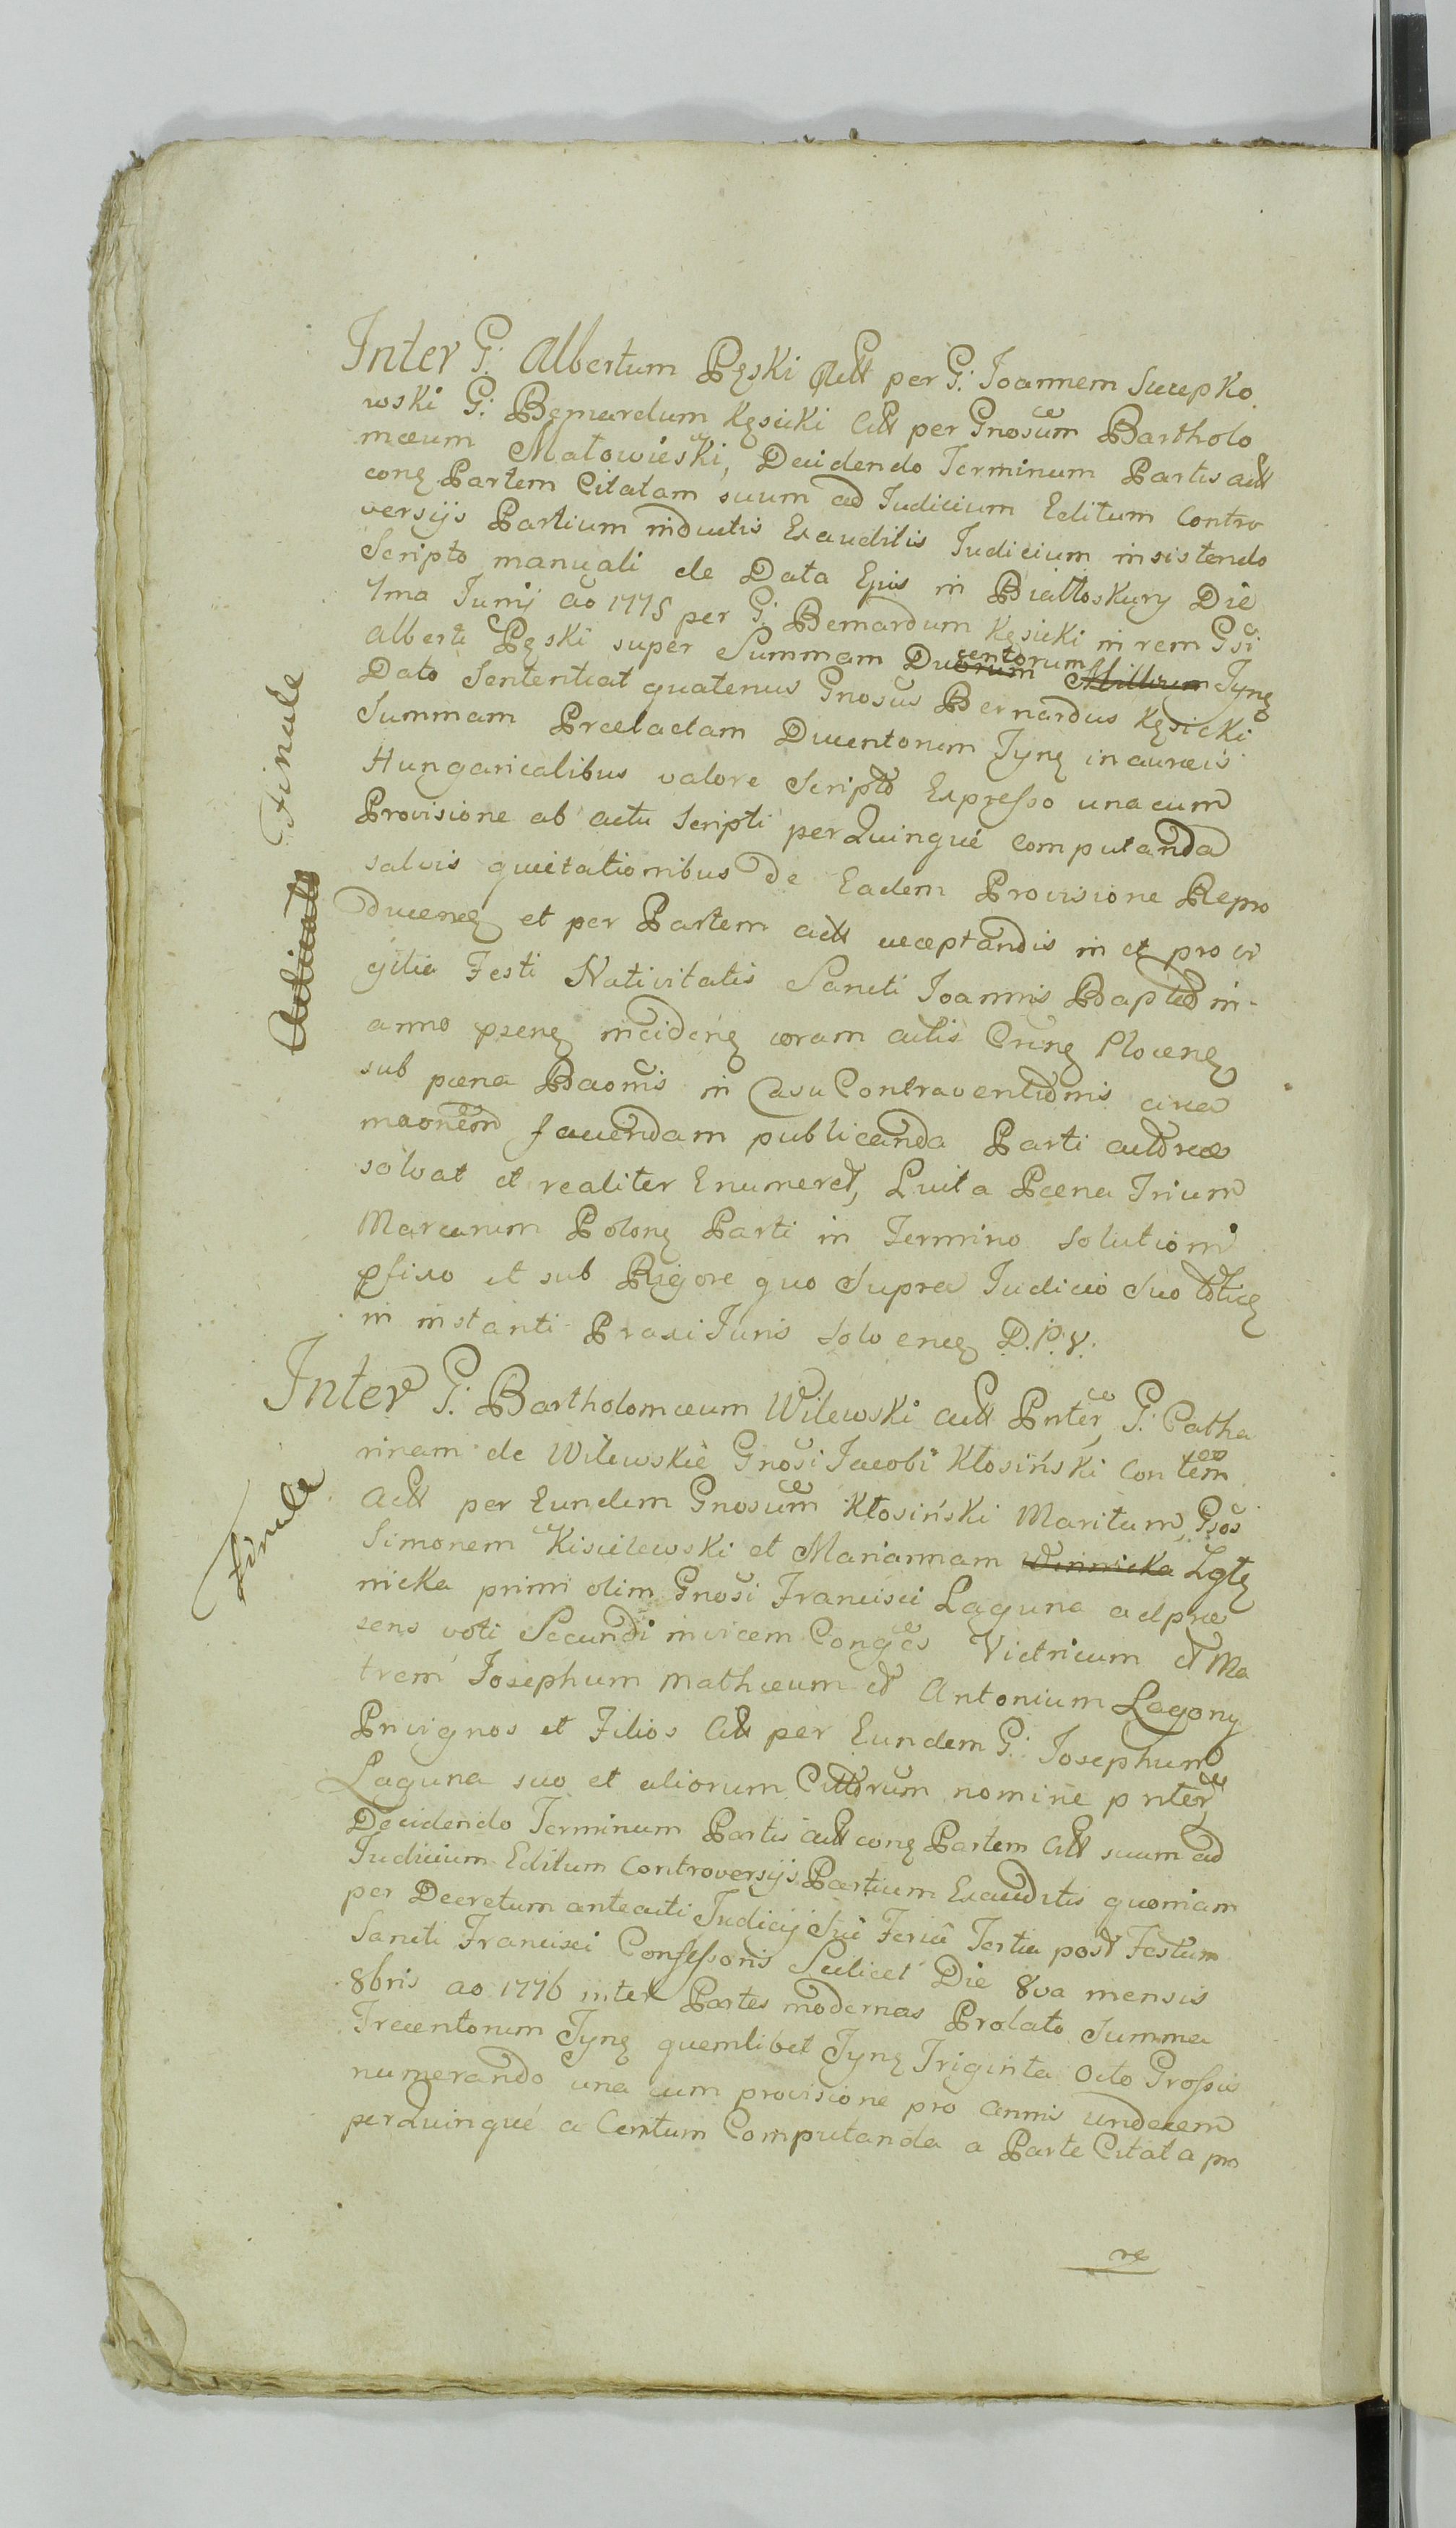 Inter G: Albertum Pęski Actt per G: Joannem Szczepko
wski G: Bernardum Kęsicki Citt per Gnosum Bartho­lo
mæum Małowieski, Decidendo Terminum Partis actt
conę Partem Citatam suum ad Judicium Editum Contro
versijs Partium inductis Exauditis Judicium insistendo
Scripto manuali de Data Ejus in Białłoskury Die
1ma Junij ao 1775 per G: Bernardum Kęsicki in rem Gsi
Alberti Pęski super Summam Ducentorum Tynę
Dato Sententiat quatenus Gnosus Bernardus Kęsicki
Summam Prælactam Ducentorum Tynę in aureis
Hungaricalibus valore Scripto Expresso unacum
Provisione ab actu Scripti per Quinque computanda
salvis quietationibus De Eadem Provisione Repro
ducenę et per Partem actt acceptandis in et pro vi
gilia Festi Nativitatis Sancti Joannis Bapte in
anno psenę incidenę coram actis Crinę Plocenę
sub pæna Baonis in Casu Contraventionis circa
maonem facιendam publicanda Parti actoreæ
solvat et realiter Enumeret, Luita Pæna Trium
Marcarum Polonę Parti in Termino Solutioni
pfixo et sub Rigore quo Supra Judicio Suo totięę
in instanti Praxi Juris Solvencę D.P.V.
Finale
Inter G: Bartholomæum Wilewski actt Pnter, G: Catha
rinam de Wilewskie Gnosi Jacobi Kłosiński Contem
Actt per Eundem Gnosum Kłosiński Maritum, Gsos
Simonem Kisielewski et Mariannam Winnicka Lgtę
nicka primi olim Gnosi Francisci Laguna ad præ
sens voti Secundi invicem Conges Victricum et Ma
trem Josephum Mathæum et Antonium Lagony
Privignos et Filios Citt per Eundem G: Josephum
Laguna suo et aliorum Cittorum nomine pnter,
Decidendo Terminum Partis actt conę Partem Citt suum ad
Judicium Editum Controversijs Partium Exauditis quoniam
per Decretum anteacti Judicij Sui Feria Tertia post Festum
Sancti Francisci Confessoris Scilicet Die 8va mensis
8bris ao 1776 inter Partes modernas Prolato Summa
Trecentorum Tynę quemlibet Tynę Triginta Octo Grossis
numerando una cum provisione pro annis undecem
per Quinque a Centum Computanda a Parte Citata pro
Finale
re